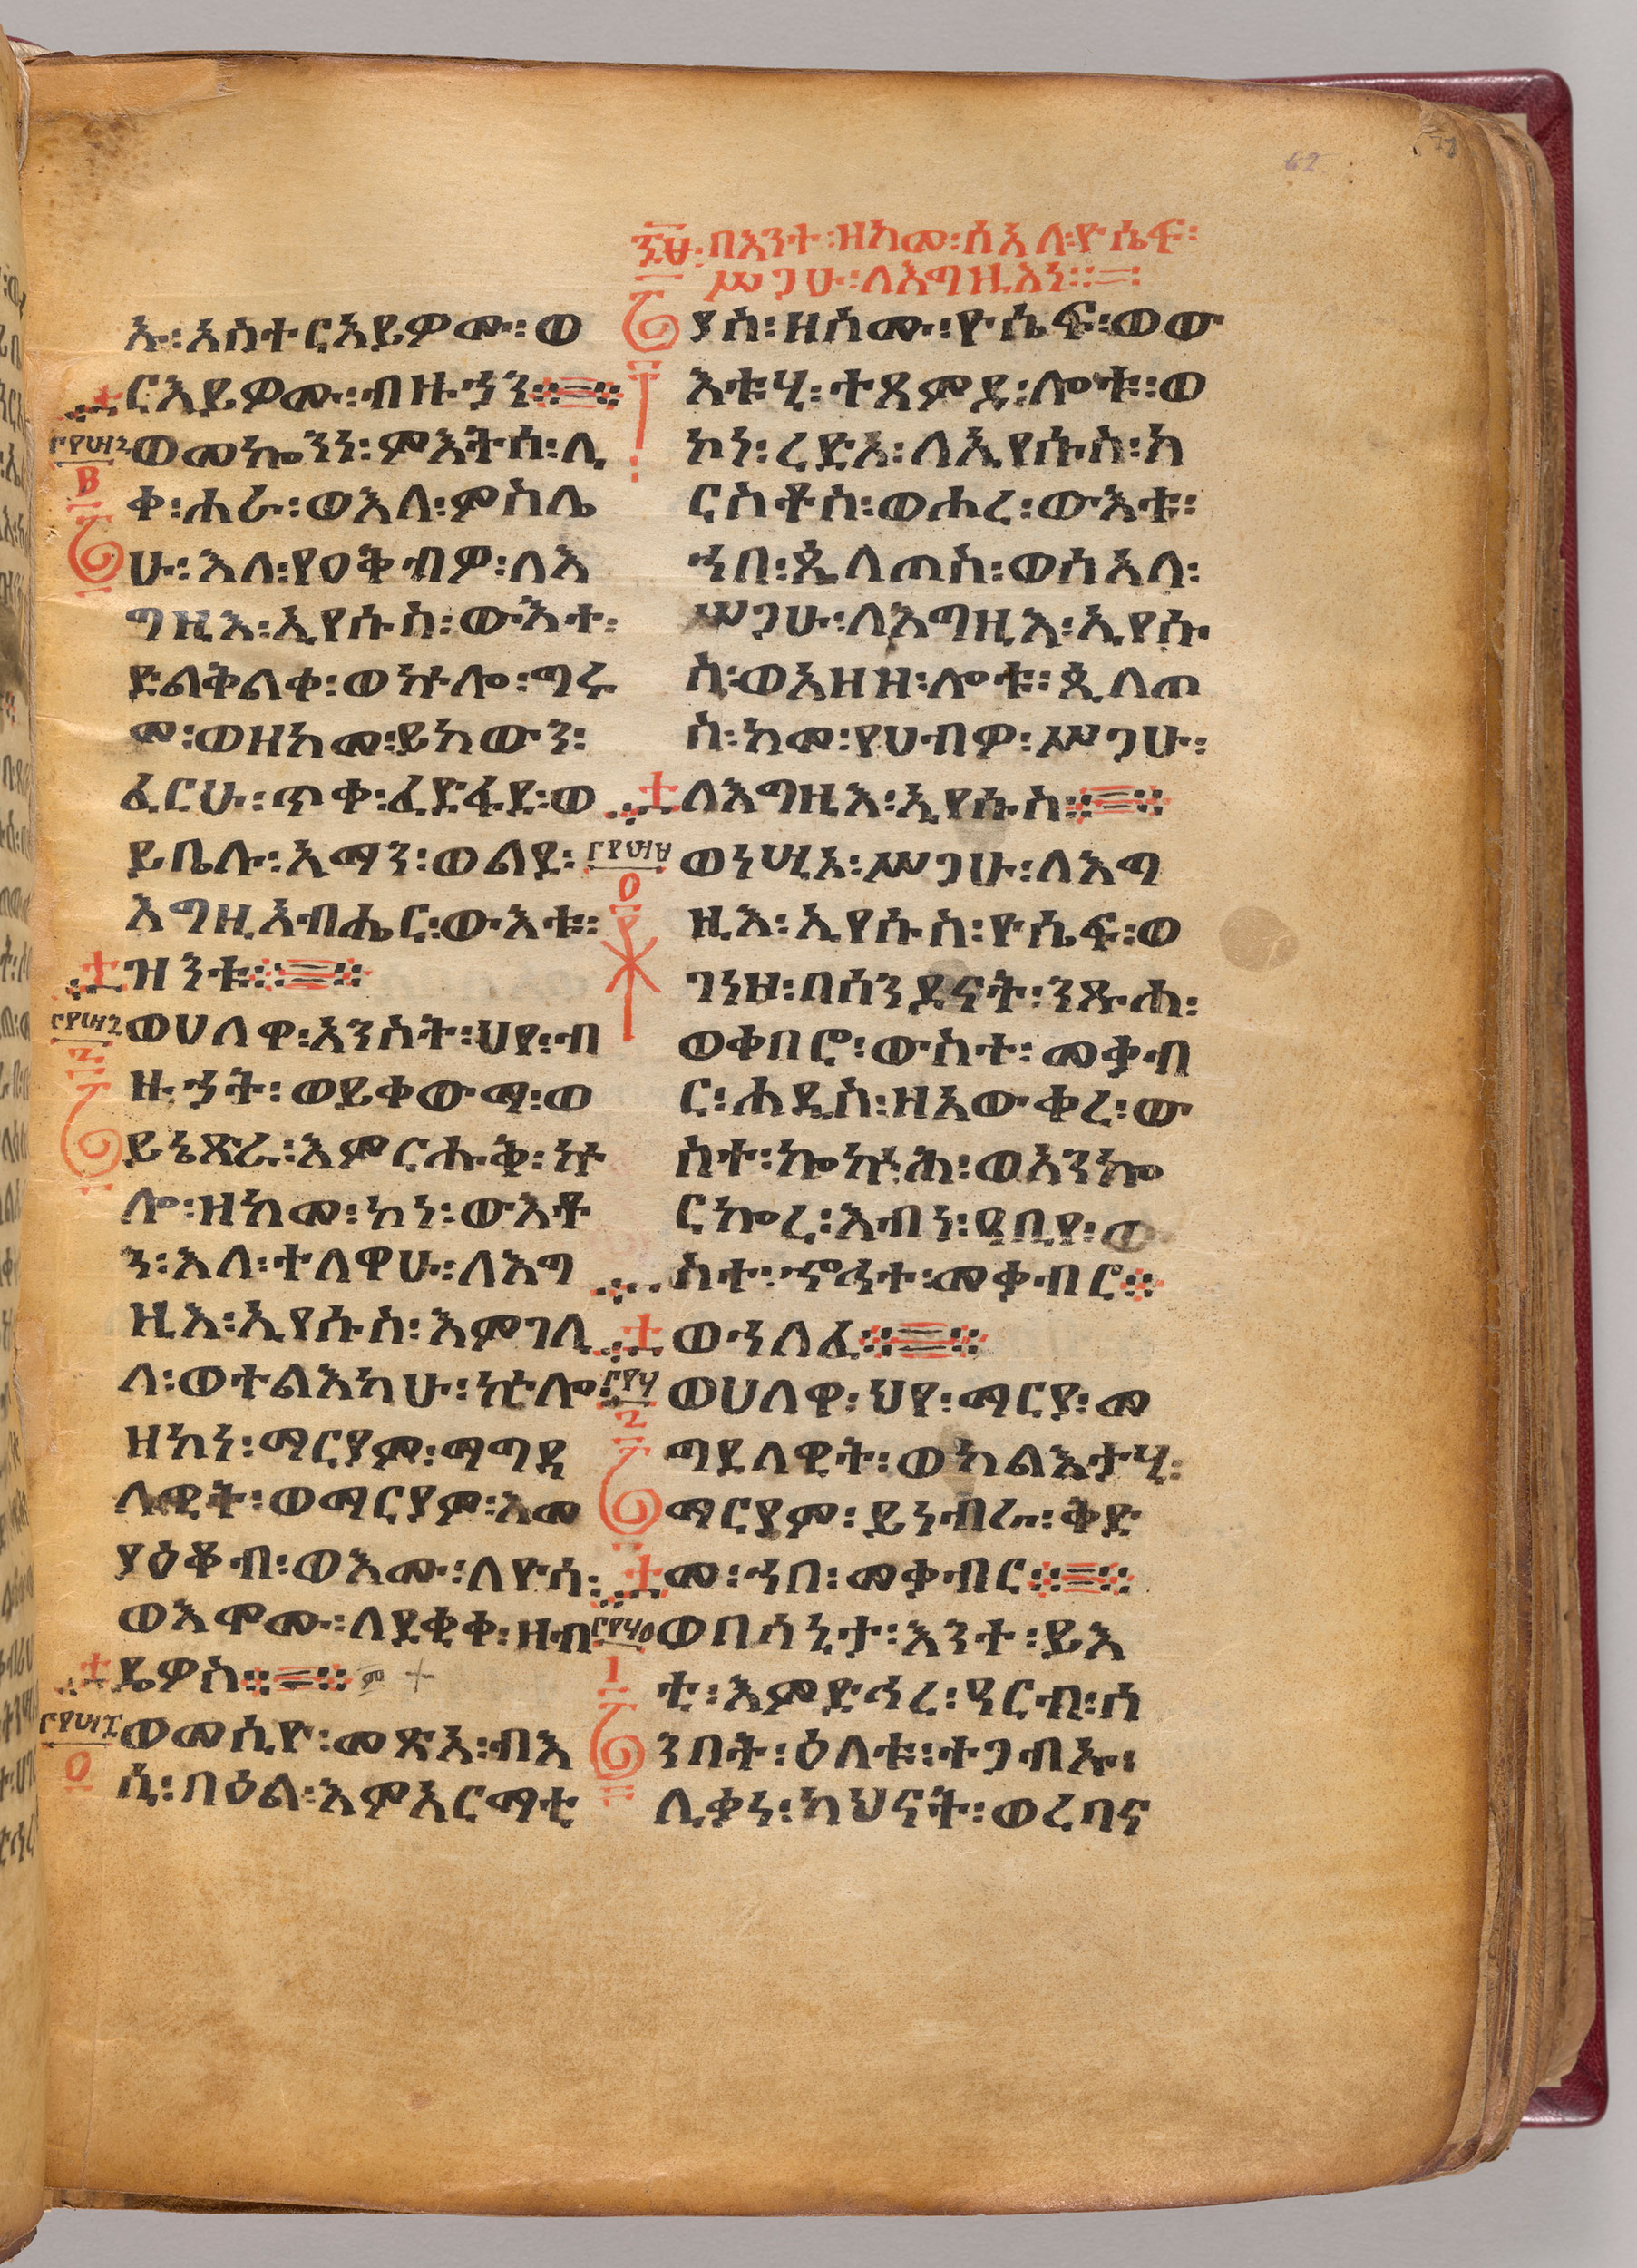 62
፶፰፡ በእንተ፡ዘከመ፡ሰአለ፡ዮሴፍ፡
ሥጋሁ፡ለእግዚእነ።
ኡ፡አስተርአይዎሙ፡ወ
ርእይዎሙ፡ብዙኃን።
ወመኰንነ፡ምእትሰ፡ሊ
ቀ፡ሐራ፡ወእለ፡ምስሌ
ሁ፡እለ፡የዐቅብዎ፡ለእ
ግዚእ፡ኢየሱስ፡ውእተ፡
ድልቅልቀ፡ወኵሎ፡ግሩ
መ፡ወዘከመ፡ይከውን፡
ፈርሁ፡ጥቀ፡ፈድፋደ፡ወ
ይቤሉ፡አማን፡ወልደ፡
እግዚአብሔር፡ውእቱ፡
ዝንቱ።
ወሀለዋ፡አንስት፡ህየ፡ብ
ዙኃት፡ወይቀውማ፡ወ
ይኔጽራ፡እምርሑቅ፡ኵ
ሎ፡ዘከመ፡ኮነ፡ውእቶ
ን፡እለ፡ተለዋሁ፡ለእግ
ዚእ፡ኢየሱስ፡እምገሊ
ላ፡ወተልእካሁ፡ኵሎ፡
ዘኮነ፡ማርያም፡ማግዳ
ላዊት፡ወማርያም፡እመ
ያዕቆብ፡ወእሙ፡ለዮሳ፡
ወእሞሙ፡ለደቂቀ፡ዘብ
ዴዎስ።
ወመሲዮ፡መጽአ፡ብእ
ሲ፡በዕል፡እምአርማቲ
ያስ፡ዘስሙ፡ዮሴፍ፡ወው
እቱሂ፡ተጸምዶ፡ሎቱ፡ወ
ኮነ፡ረድአ፡ለኢየሱስ፡ክ
ርስቶስ፡ወሖረ፡ውእቱ፡
ኀበ፡ጲላጦስ፡ወሰአለ፡
ሥጋሁ፡ለእግዚእ፡ኢየሱ
ስ፡ወአዘዘ፡ሎቱ፡ጲላጦ
ስ፡ከመ፡የሀብዎ፡ሥጋሁ፡
ለእግዚእ፡ኢየሱስ።
ወነሢኦ፡ሥጋሁ፡ለእግ
ዚእ፡ኢየሱስ፡ዮሴፍ፡ወ
ገነዞ፡በሰንዶናት፡ንጹሐ፡
ወቀበሮ፡ውስተ፡መቃብ
ር፡ሐዲስ፡ዘአውቀረ፡ው
ስተ፡ኰኵሕ፡ወአንኰ
ርኰረ፡እብነ፡ዓቢየ፡ው
ስተ፡ኆኅተ፡መቃብሮ
ወኀለፈ።
ወሀለዋ፡ህየ፡ማርያ፡መ
ግደላዊት፡ወካልእታሂ፡
ማርያም፡ይነብራ፡ቅድ
መ፡ኀበ፡መቃብር።
ወበሳኒታ፡እንተ፡ይእ
ቲ፡እምድኅረ፡ዓርብ፡ሰ
ንበት፡ዕለቱ፡ተጋብኡ፡
ሊቃነ፡ካህናት፡ወረባና